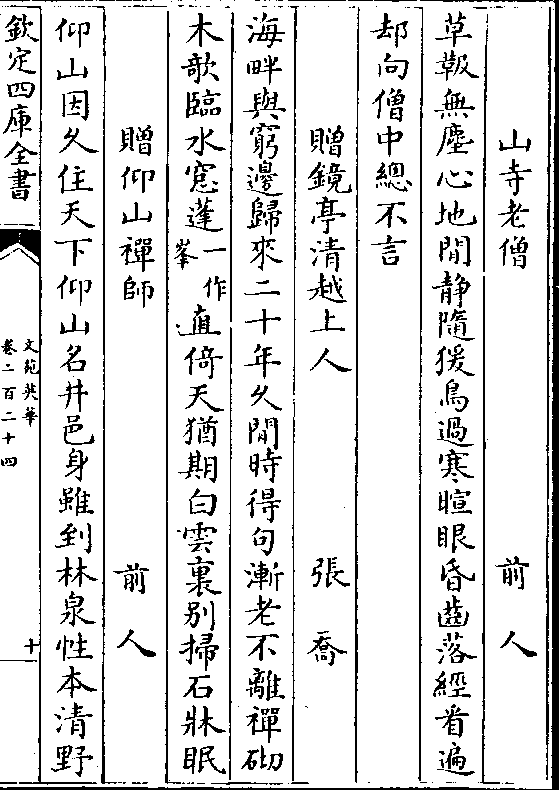 山寺老僧　前人
草鞋無塵心地閒静隨猨鳥過寒暄眼昏齒落經看遍
却向僧中總不言
贈鏡亭清越上人　張喬
海畔與窮邊歸來二十年久閒時得句漸老不離禪砌
木欹臨水窓蓬一作峯直倚天猶期白雲裏别掃石牀眠
贈仰山禪師　前人
仰山因久住天下仰山名井邑身雖到林泉性本清野
欽定四庫全書
文苑英華
卷二百二十四
十